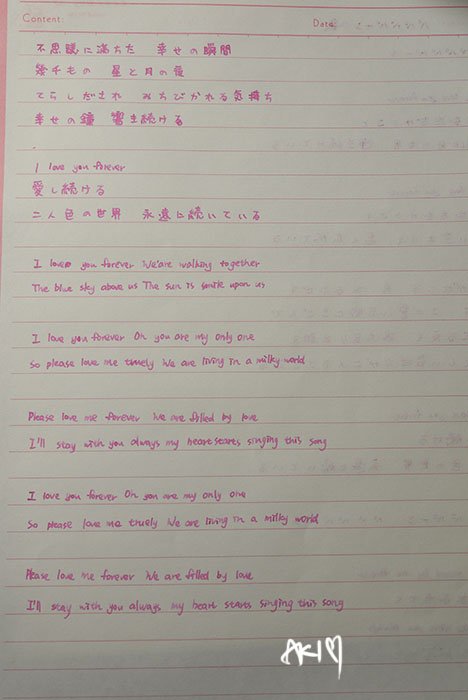 Content: Date:
不思議に満ちた 幸せの瞬間
幾千もの 星と月の夜
てらしだされ みちびかれる気持ち
幸せの鐘 響き続ける
I love you forever
愛し続ける
二人色の世界 永遠に続いている
I love you forever We are walking together
The blue sky above us The sun is smile upon us
I love you forever Oh you are my only one
So please love me truely We are living in a milky world
Please love me forever We are filled by love
I'll stay with you always my heart starts singing this song
I love you forever Oh you are my only one
So please love me truely We are living in a milky world
Please love me forever We are filled by love
I'll stay with you always my heart starts singing this song
AKI♡